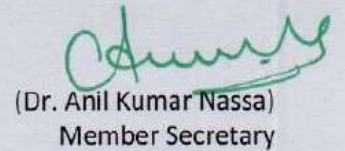 (Dr. Anil Kumar Nassa)
Member Secretary